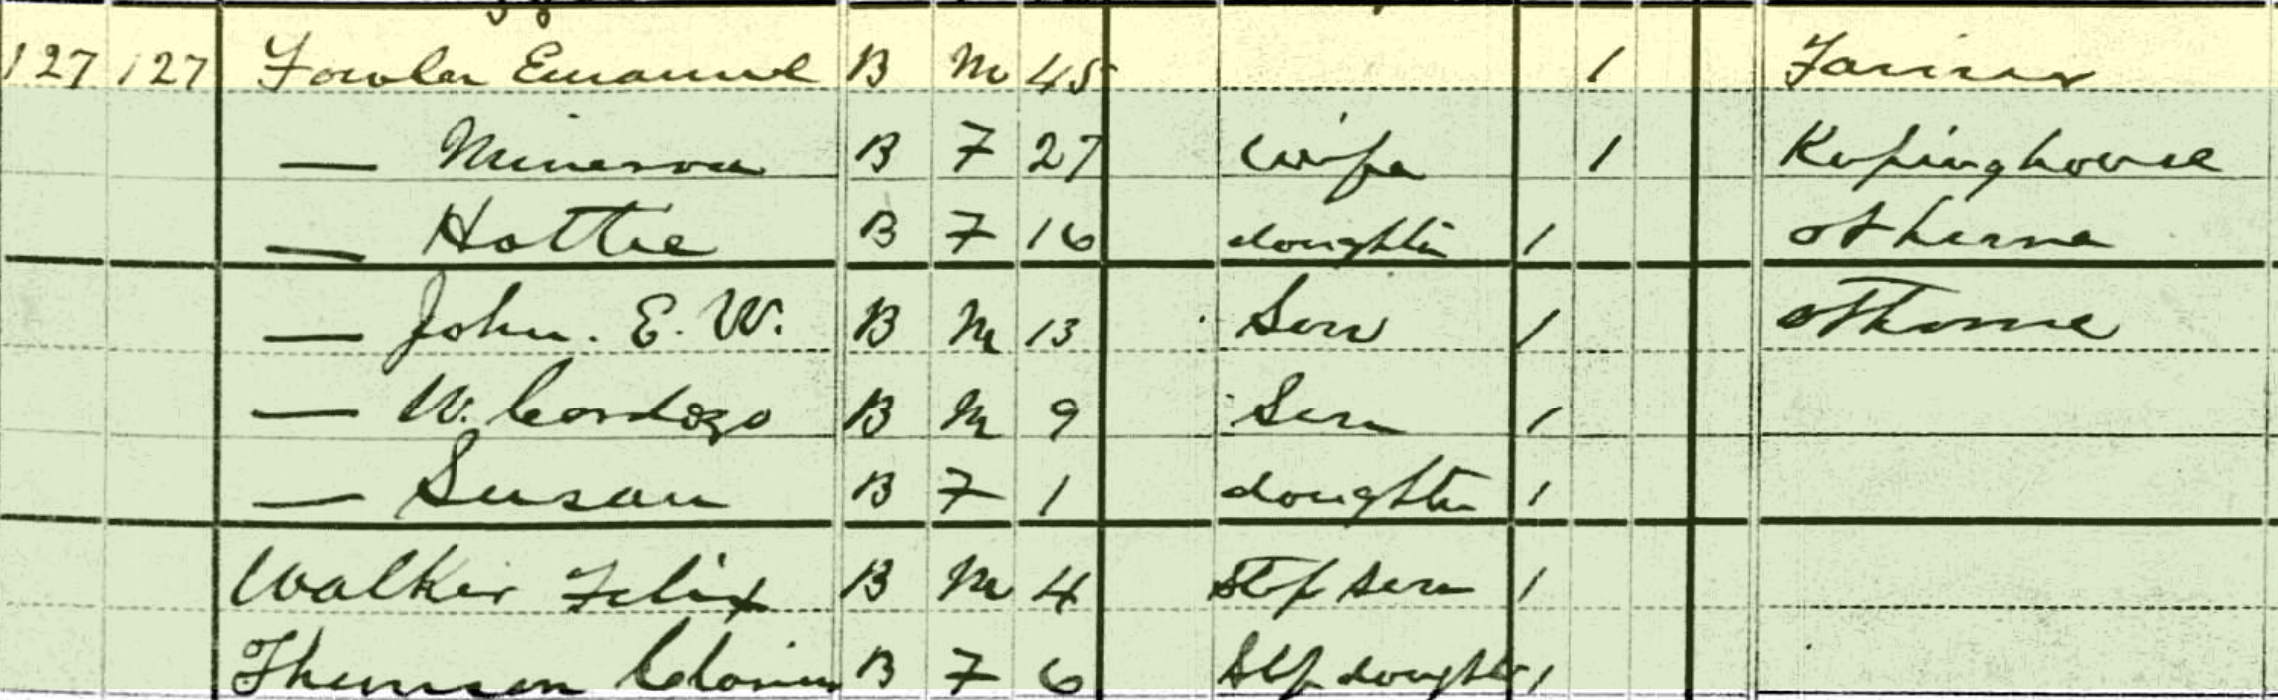 127 127 Fowler Emanuel B M 45 1 Farmer
— Minerva B F 27 wife 1 Kepinghouse
— Hattie B F 16 doughter 1 at home
— John. E. W. B M 13 Son 1 at home
— W. Cordozo B M 9 Son 1
— Susan B F 1 doughter 1
Walker Felix B M 4 Step Son 1
Thomson B F 6 Step doughter 1